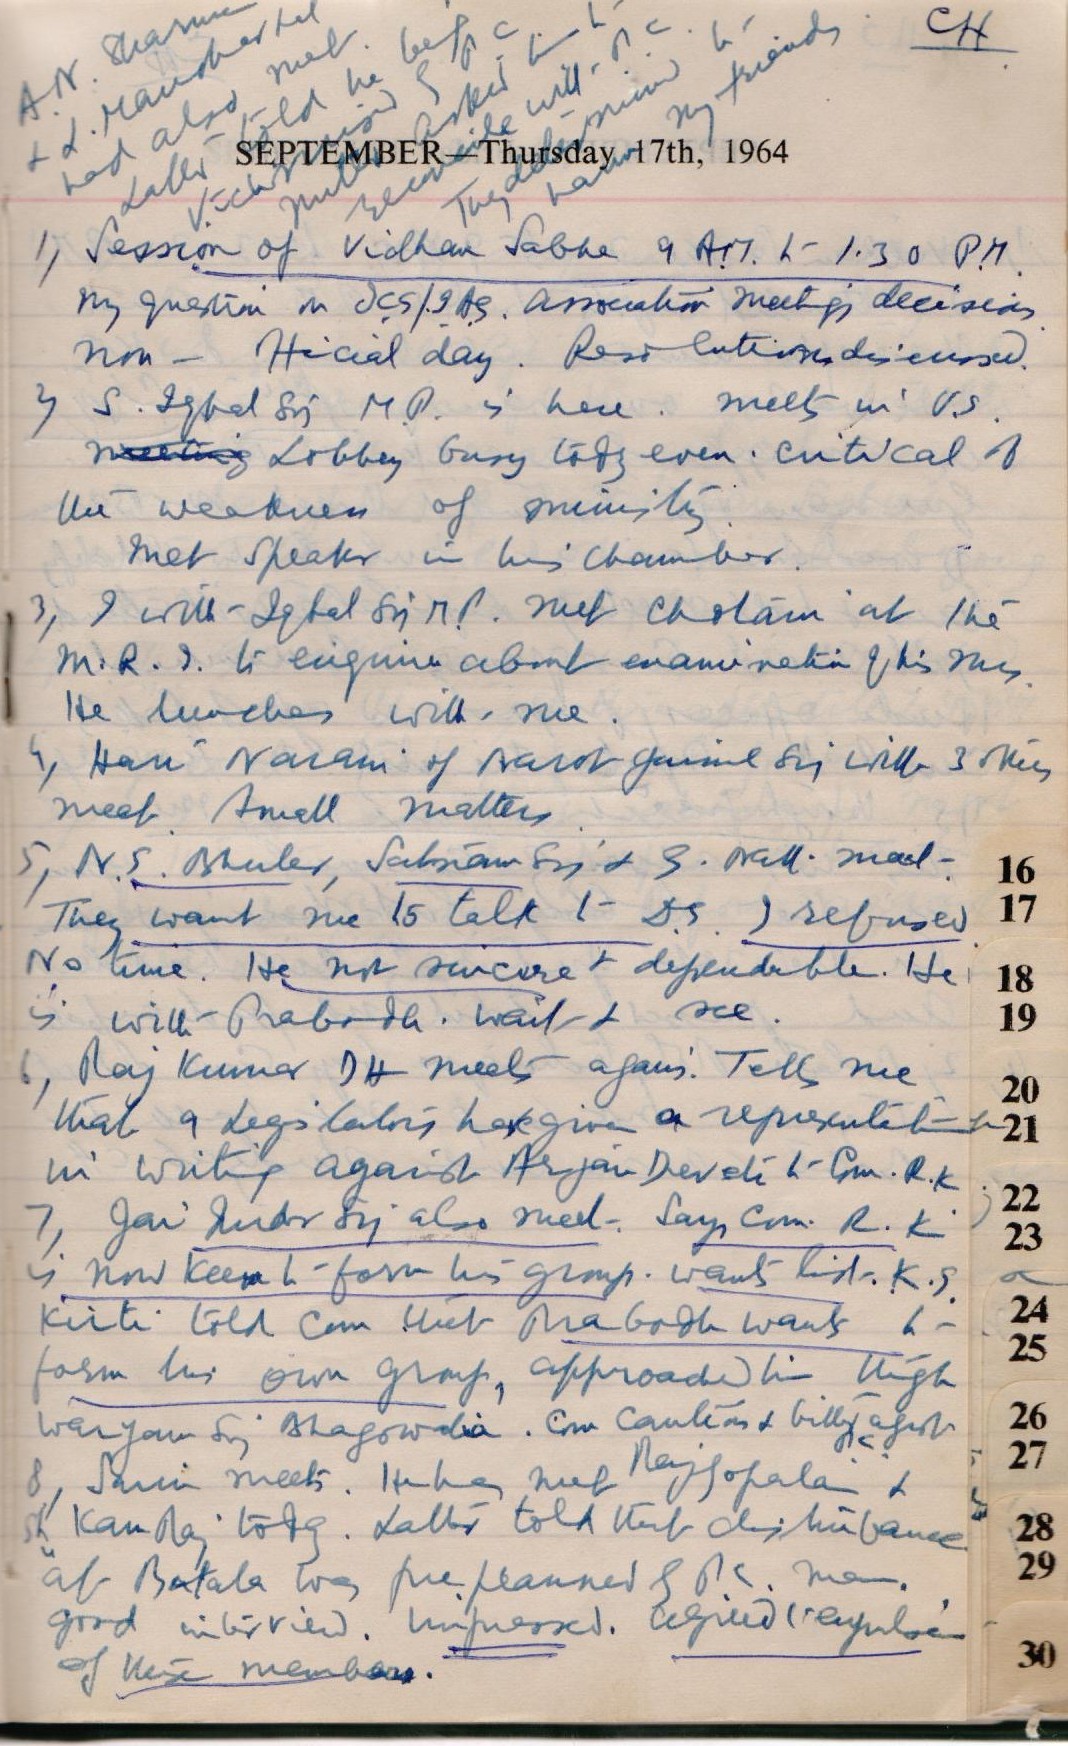 CH
A.N. Sharma
& L. Manohar Lal
had also met.
Latter told he
Victimised by P.C.
asked him to
reconcile with P.C.
They determined to
my friends
SEPTEMBER—Thursday 17th, 1964
1, Session of Vidhan Sabha 9 A.M. to 1.30 P.M.
My question on ICS/IAS. Association meetings decisions
non – official day. Resolutions discussed.
2, S. Iqbal Sij M.P. is here. meets in V.S.
meeting Lobby busy today even. critical of
the weakness of ministry.
Met Speaker in his chamber.
3, I with Iqbal Sij M.P. met at the
M.R.I. to enquire about examination of his
He lunches with me.
4, Hari Narain of Narot Jaimal Sij with 3 others
meet. Small matters.
5, N.S. Bhuler, Satnam Sij & S. met.
They want me to talk to D.S. I refused
No time. He not sincere & dependable. He
is with Prabodh. wait & see.
6, Raj Kumar DH meets again. Tells me
that 9 Legislators has given a representation
in writing against Arjan Devati to Com. R.K
7, Jai Inder Sij also met. Says Com. R. K
is now keen to form his group. wants list. K.S.
Kirti told Com that Prabodh wants to
form his own group, approached him through
Waryam Sij Bhagowalia. Com cautions &
8, Sarin meets. He has met Rajgopalan &
Sh Kam Raj today. Latter told that disturbance
at Batala was preplanned by P.C. men.
good interview. impressed. agreed expulsion
of these members.
16
17
18
19
20
21
22
23
24
25
26
27
28
29
30